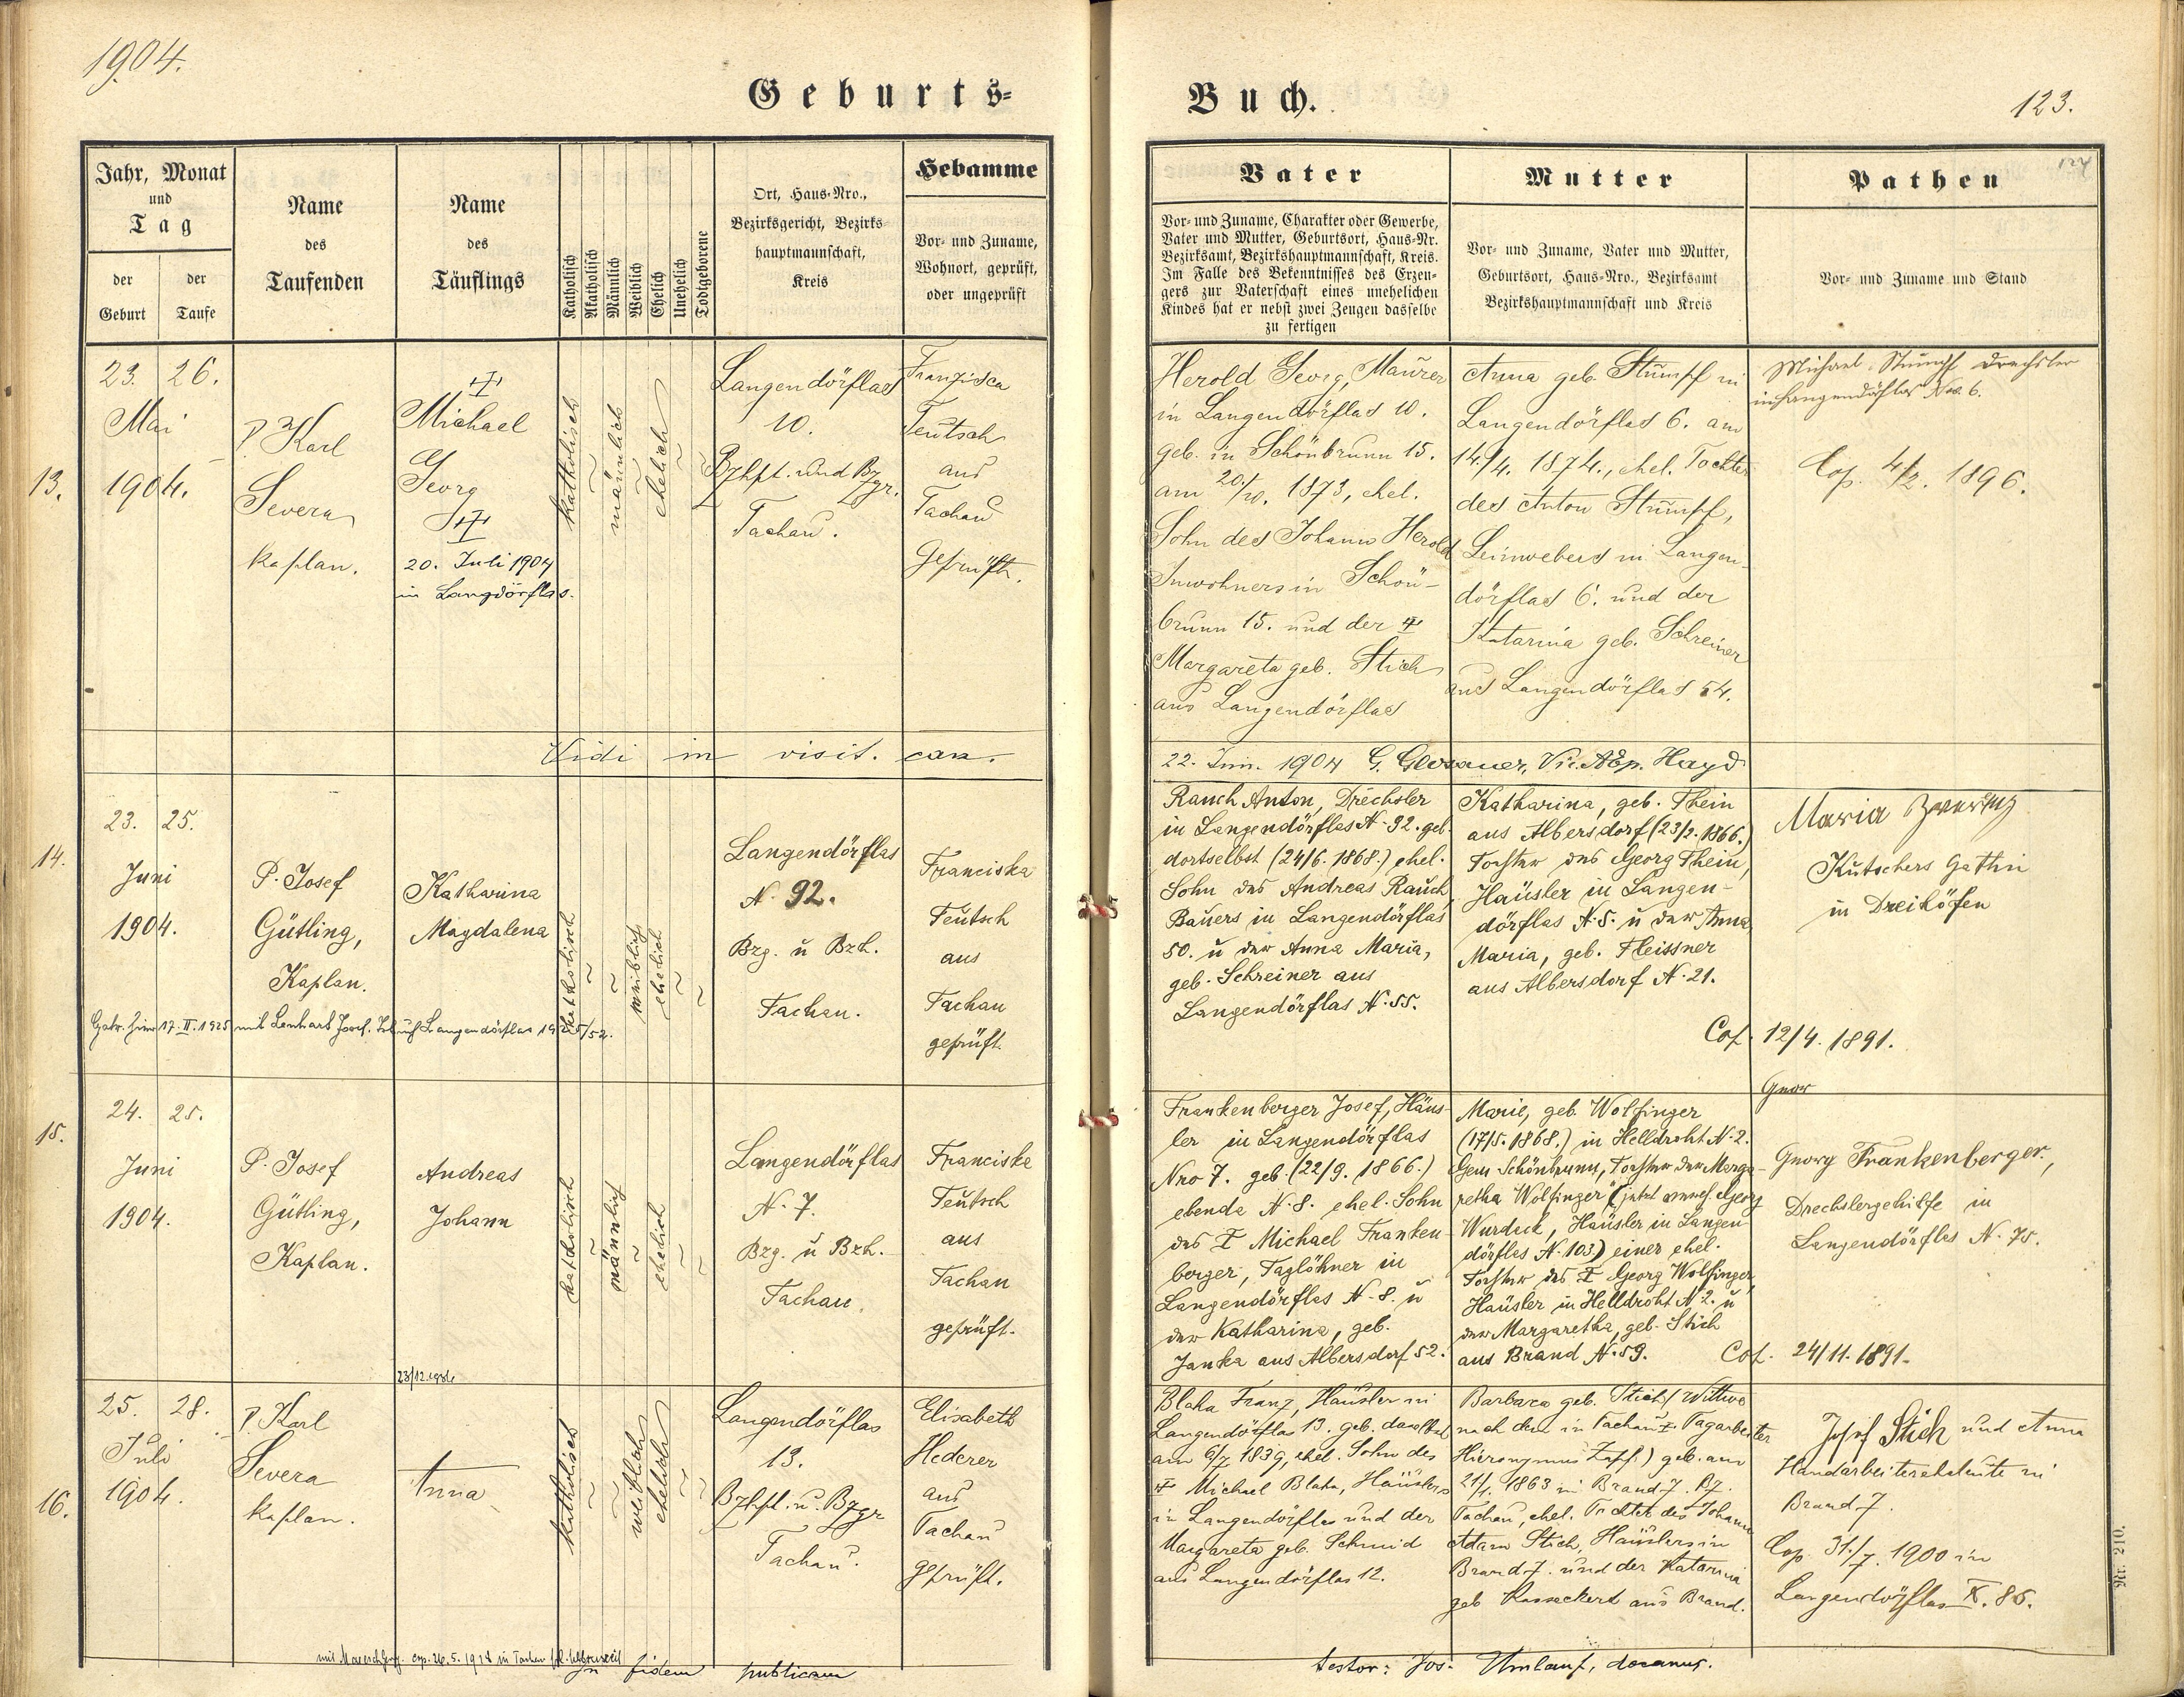 1904.
Geburts-
Buch.
123.
124
Jahr, Monat
und
Tag
der
Geburt
der
Taufe
Name
des
Taufenden
Name
des
Täuflings
Katholisch
Akatholisch
Männlich
Weiblich
Ehelich
Unehelich
Todtgeborene
Ort, Haus-Nro.,
Bezirksgericht, Bezirks-
hauptmannschaft,
Kreis
Hebamme
Vor- und Zuname,
Wohnort, geprüft,
oder ungeprüft
Vater
Vor- und Zuname, Charakter oder Gewerbe,
Vater und Mutter, Geburtsort, Haus-Nr.
Bezirksamt, Bezirkshauptmannschaft, Kreis.
Im Falle des Bekenntnisses des Erzeu-
gers zur Vaterschaft eines unehelichen
Kindes hat er nebst zwei Zeugen dasselbe
zu fertigen
Mutter
Vor- und Zuname, Vater und Mutter,
Geburtsort, Haus-Nro., Bezirksamt
Bezirkshauptmannschaft und Kreis
Pathen
Vor- und Zuname und Stand
13.
23. 26.
Mai
1904.
P. Karl
Severa
Kaplan.
Michael
Georg
20. Juli 1904
in Langdörflas.
katholisch
~
männlich
~
ehelich
~
~
Langendörflas
10.
Bzhpt. und Bzgr.
Tachau.
Franzisca
Teutsch
aus
Tachau
Geprüft.
Herold Georg, Maurer
in Langendörflas 10.
geb. in Schönbrunn 15.
am 20./10. 1873, ehel.
Sohn des Johann Herold
Inwohners in Schön-
brunn 15. und der †
Margareta geb. Stich
aus Langendörflas
Anna geb. Stumpf in
Langendörflas 6. am
14./4. 1874., ehel. Tochter
des Anton Stumpf,
Leinwebers in Langen-
dörflas 6. und der
Katarina geb. Schreiner
aus Langendörflas 54.
Michael Stumpf Drechsler
in Langendörflas Nro. 6.
Cop. 4/2. 1896.
Vidi in visit. can.
22. Jun. 1904 G. Glosauer, Vic. Adp. Hayd
14.
23. 25.
Juni
1904.
P. Josef
Gütling,
Kaplan.
Katharina
Magdalena
katholisch
~
~
weiblich
ehelich
~
~
Langendörflas
N. 92.
Bzg. u Bzh.
Tachau.
Franciska
Teutsch
aus
Tachau
geprüft.
Rauch Anton, Drechsler
in Langendörflas N. 92. geb.
dortselbst (24/6. 1868.) ehel.
Sohn des Andreas Rauch
Bauers in Langendörflas
50. u der Anna Maria,
geb. Schreiner aus
Langendörflas N. 55.
Katharina, geb. Thein
aus Albersdorf (23/2. 1866.)
Tochter des Georg Thein,
Häusler in Langen-
dörflas N. 5. u der Anna
Maria, geb. Fleissner
aus Albersdorf N. 21.
Maria
Kutschers Gattin
in Dreihöfen
Cop. 12/4. 1891.
17. II. 1925 mit Lenhart Josef. Langendörflas
15.
24. 25.
Juni
1904.
P. Josef
Gütling,
Kaplan.
Andreas
Johann
katholisch
~
männlich
~
ehelich
~
~
Langendörflas
N. 7.
Bzg. u Bzh.
Tachau.
Franciska
Teutsch
aus
Tachau
geprüft.
Frankenberger Josef, Häus-
ler in Langendörflas
Nro 7. geb. (22/9. 1866.)
ebenda N. 8. ehel. Sohn
des † Michael Franken-
berger, Taglöhner in
Langendörflas N. 8. u
der Katharina, geb.
Janka aus Albersdorf 52.
Marie, geb. Wolfinger
(17/5. 1868.) in Helldroht N. 2.
Gem. Schönbrunn, Tochter der Marga-
retha Wolfinger (jetzt verehel. Georg
Wurdack, Häusler in Langen-
dörflas N. 103) einer ehel.
Tochter des † Georg Wolfinger,
Häusler in Helldroht N. 2. u
der Margaretha, geb. Stich
aus Brand N. 59.
Georg Frankenberger,
Drechslergehilfe in
Langendörflas N. 75.
Cop. 24/11. 1891.
16.
25. 28.
Juli
1904.
P. Karl
Severa
Kaplan.
Anna
katholisch
~
~
weiblich
ehelich
~
~
Langendörflas
13.
Bzhpt. u. Bzgr
Tachau.
Elisabeth
Hederer
aus
Tachau
Geprüft.
Blaha Franz, Häusler in
Langendörflas 13. geb. daselbst
am 6/7. 1839, ehel. Sohn des
† Michael Blaha, Häuslers
in Langendörflas und der
Margareta geb. Schmid
aus Langendörflas 12.
Barbara geb. Stich (Wittwe
nach dem in Tachau † Tagarbeiter
Hieronymus Zapf.) geb. am
21/1. 1863 in Brand 7. Bz.
Tachau, ehel. Tochter des Johann
Adam Stich, Häuslers in
Brand 7. und der Katarina
geb. aus Brand.
Josef Stich und Anna
Handarbeitereheleute in
Brand 7.
Cop. 31./7. 1900 in
Langendörflas X. 86.
cop. 26. 5. 1924 in Tachau
In fidem publicam
testor: Jos. Umlauf, decanus.
Nr. 210.